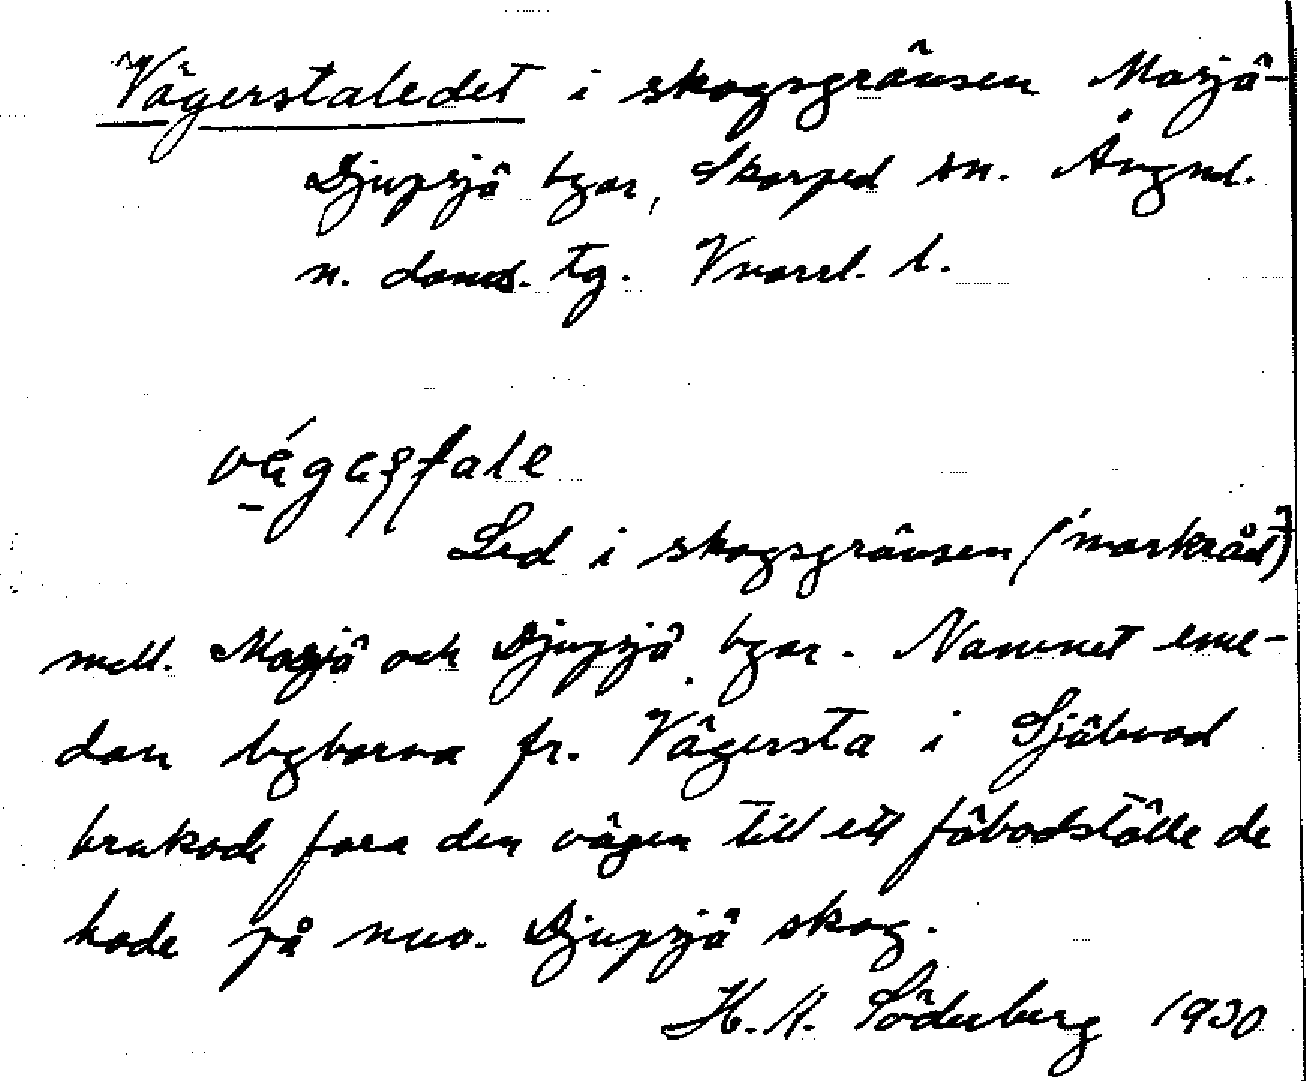 Vägerstaledet i skogsgränsen Mosjö-
Djupsjö byar, Skorped sn. Ångml.
n. doms. tg. Vnorrl. l.
Led i skogsgränsen (markråd)
mell. Mosjö och Djupsjö byar. Namnet eme-
dan byborna fr. Vägersta i Själevad
brukade fara den vägen till ett fäbodställe de
hade på nuv. Djupsjö skog.
H. A. Söderberg 1930